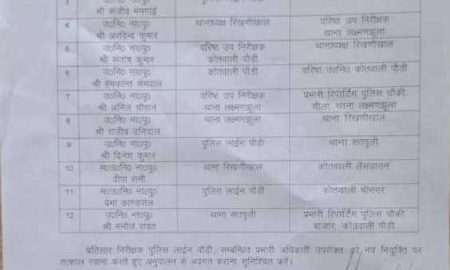 3
उ०नि० ना०पु०
श्री संजीव ममगाई
4
उ०नि० ना०पु०
श्री अरविन्द कुमार
थानाध्यक्ष रिखणीखाल
वरिष्ठ उप निरीक्षक
थाना लक्ष्मणझूला
5
उ०नि० ना०पु०
श्री संतोष कुमार
वरिष्ठ उप निरीक्षक
कोतवाली पौड़ी
थानाध्यक्ष रिखणीखाल
6
उ०नि० ना०पु०
श्री हेमकान्त सेमवाल
कोतवाली पौड़ी
वरिष्ठ उ०नि० कोतवाली पौड़ी
7
उ०नि० ना०पु०
श्री अनिल चौहान
वरिष्ठ उप निरीक्षक
थाना लक्ष्मणझूला
प्रभारी रिपोर्टिंग पुलिस चौकी
चीला, थाना लक्ष्मणझूला
8
उ०नि० ना०पु०
श्री राजीव उनियाल
थाना लक्ष्मणझूला
थाना रिखणीखाल
9
उ०नि० ना०पु०
श्री दिनेश कुमार
पुलिस लाईन पौड़ी
थाना सतपुली
10
म०उ०नि० ना०पु०
दीपा रानी
थाना रिखणीखाल
कोतवाली लैंसडाउन
11
म०उ०नि० ना०पु०
प्रेमा काण्डपाल
पुलिस लाईन पौड़ी
कोतवाली श्रीनगर
12
उ०नि० ना०पु०
श्री मनोज रावत
थाना सतपुली
प्रभारी रिपोर्टिंग पुलिस चौकी
बाजार, कोतवाली पौड़ी
प्रतिसार निरीक्षक पुलिस लाईन पौड़ी/सम्बन्धित प्रभारी अधिकारी उपरोक्त को नव नियुक्ति पर
तत्काल रवाना करते हुए अनुपालन से अवगत कराना सुनिश्चित करें।